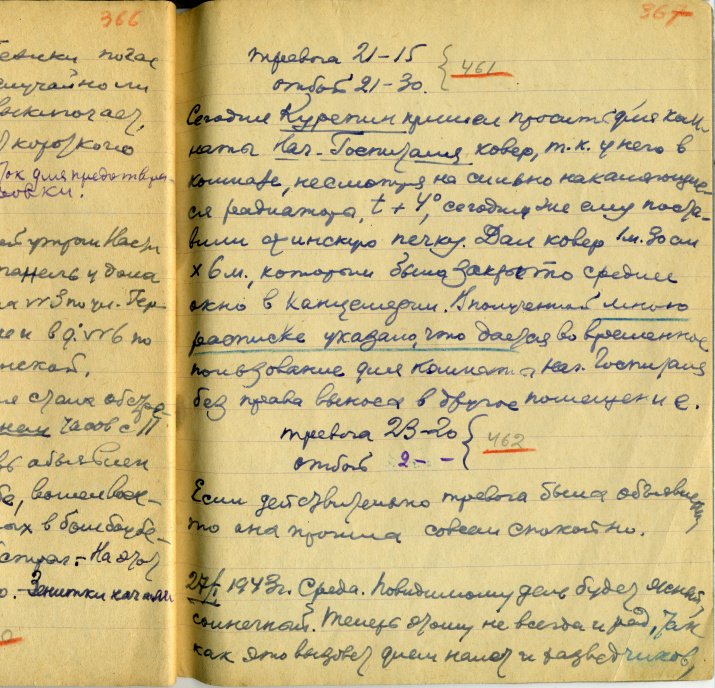 366
случайно ли
выключает,
короткого
Ток для предотвра-
часов с П
объявлен
На этот
Зенитки начали
367
тревога 21-15
отбой 21-30.
461
Сегодня Курепин пришел просить для ком-
наты Нач. Госпиталя ковер, т.к. у него в
комнате, несмотря на сильно накаляющие-
ся радиатора, t + 4°, сегодня же ему поста-
вили печку. Дал ковер 1 м. 30 см
х 6 м., которым было закрыто среднее
окно в Канцелярии. В полученной мною
расписке указано, что дается во временное
пользование для комнаты нач. Госпиталя
без права выноса в другое помещение.
тревога 23-20
отбой 2 - -
462
Если действительно тревога была объявлена,
то она прошла совсем спокойно.
27/I 1943г. Среда. Повидимому день будет ясный,
солнечный. Теперь этому не всегда и рад, так
как это вызовет днем налет и разведчиков,